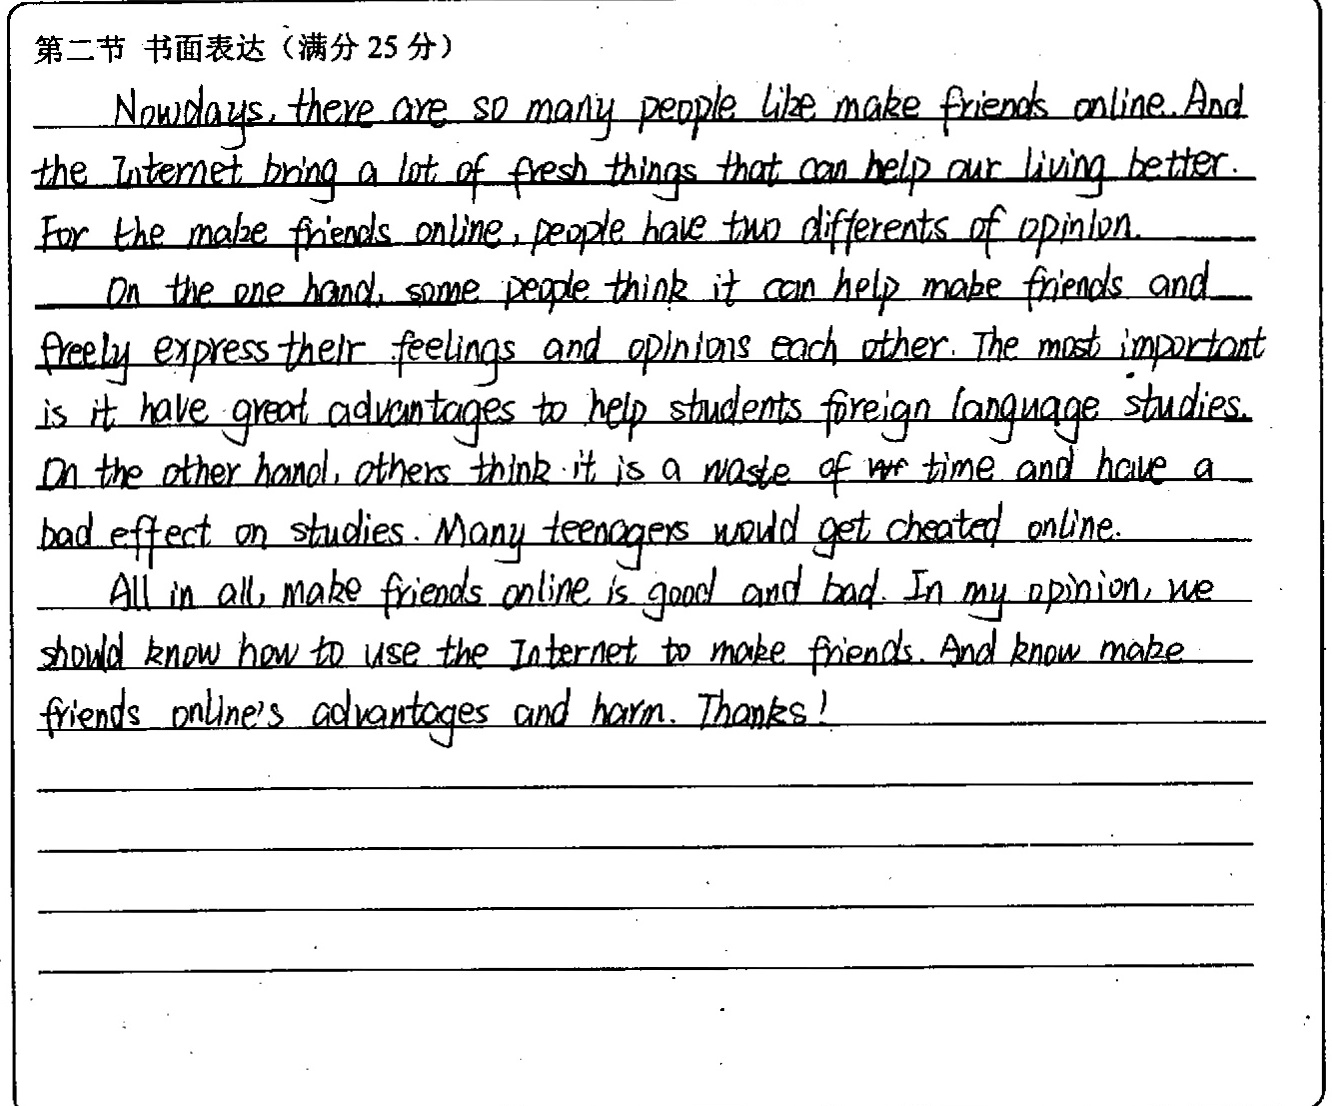 第二节 书面表达（满分 25 分）
Nowdays, there are so many people like make friends online. And
the Internet bring a lot of fresh things that can help our living better.
For the make friends online, people have two differents of opinion.
On the one hand, some people think it can help make friends and
freely express their feelings and opinions each other. The most important
is it have great advantages to help students foreign language studies.
On the other hand, others think it is a waste of time and have a
bad effect on studies. Many teenagers would get cheated online.
All in all, make friends online is good and bad. In my opinion, we
should know how to use the Internet to make friends. And know make
friends online's advantages and harm. Thanks!